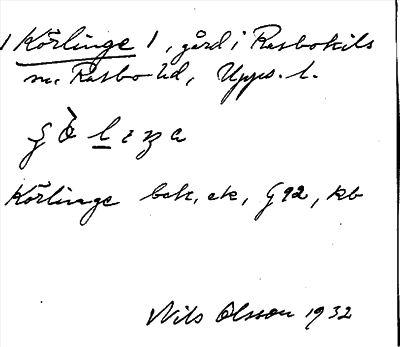 1 Körlinge 1, gård i Rasbokils
sn. Rasbo hd, Upps. l.
Körlinge bek. ek, G 92, kb
Nils Olsson 1932